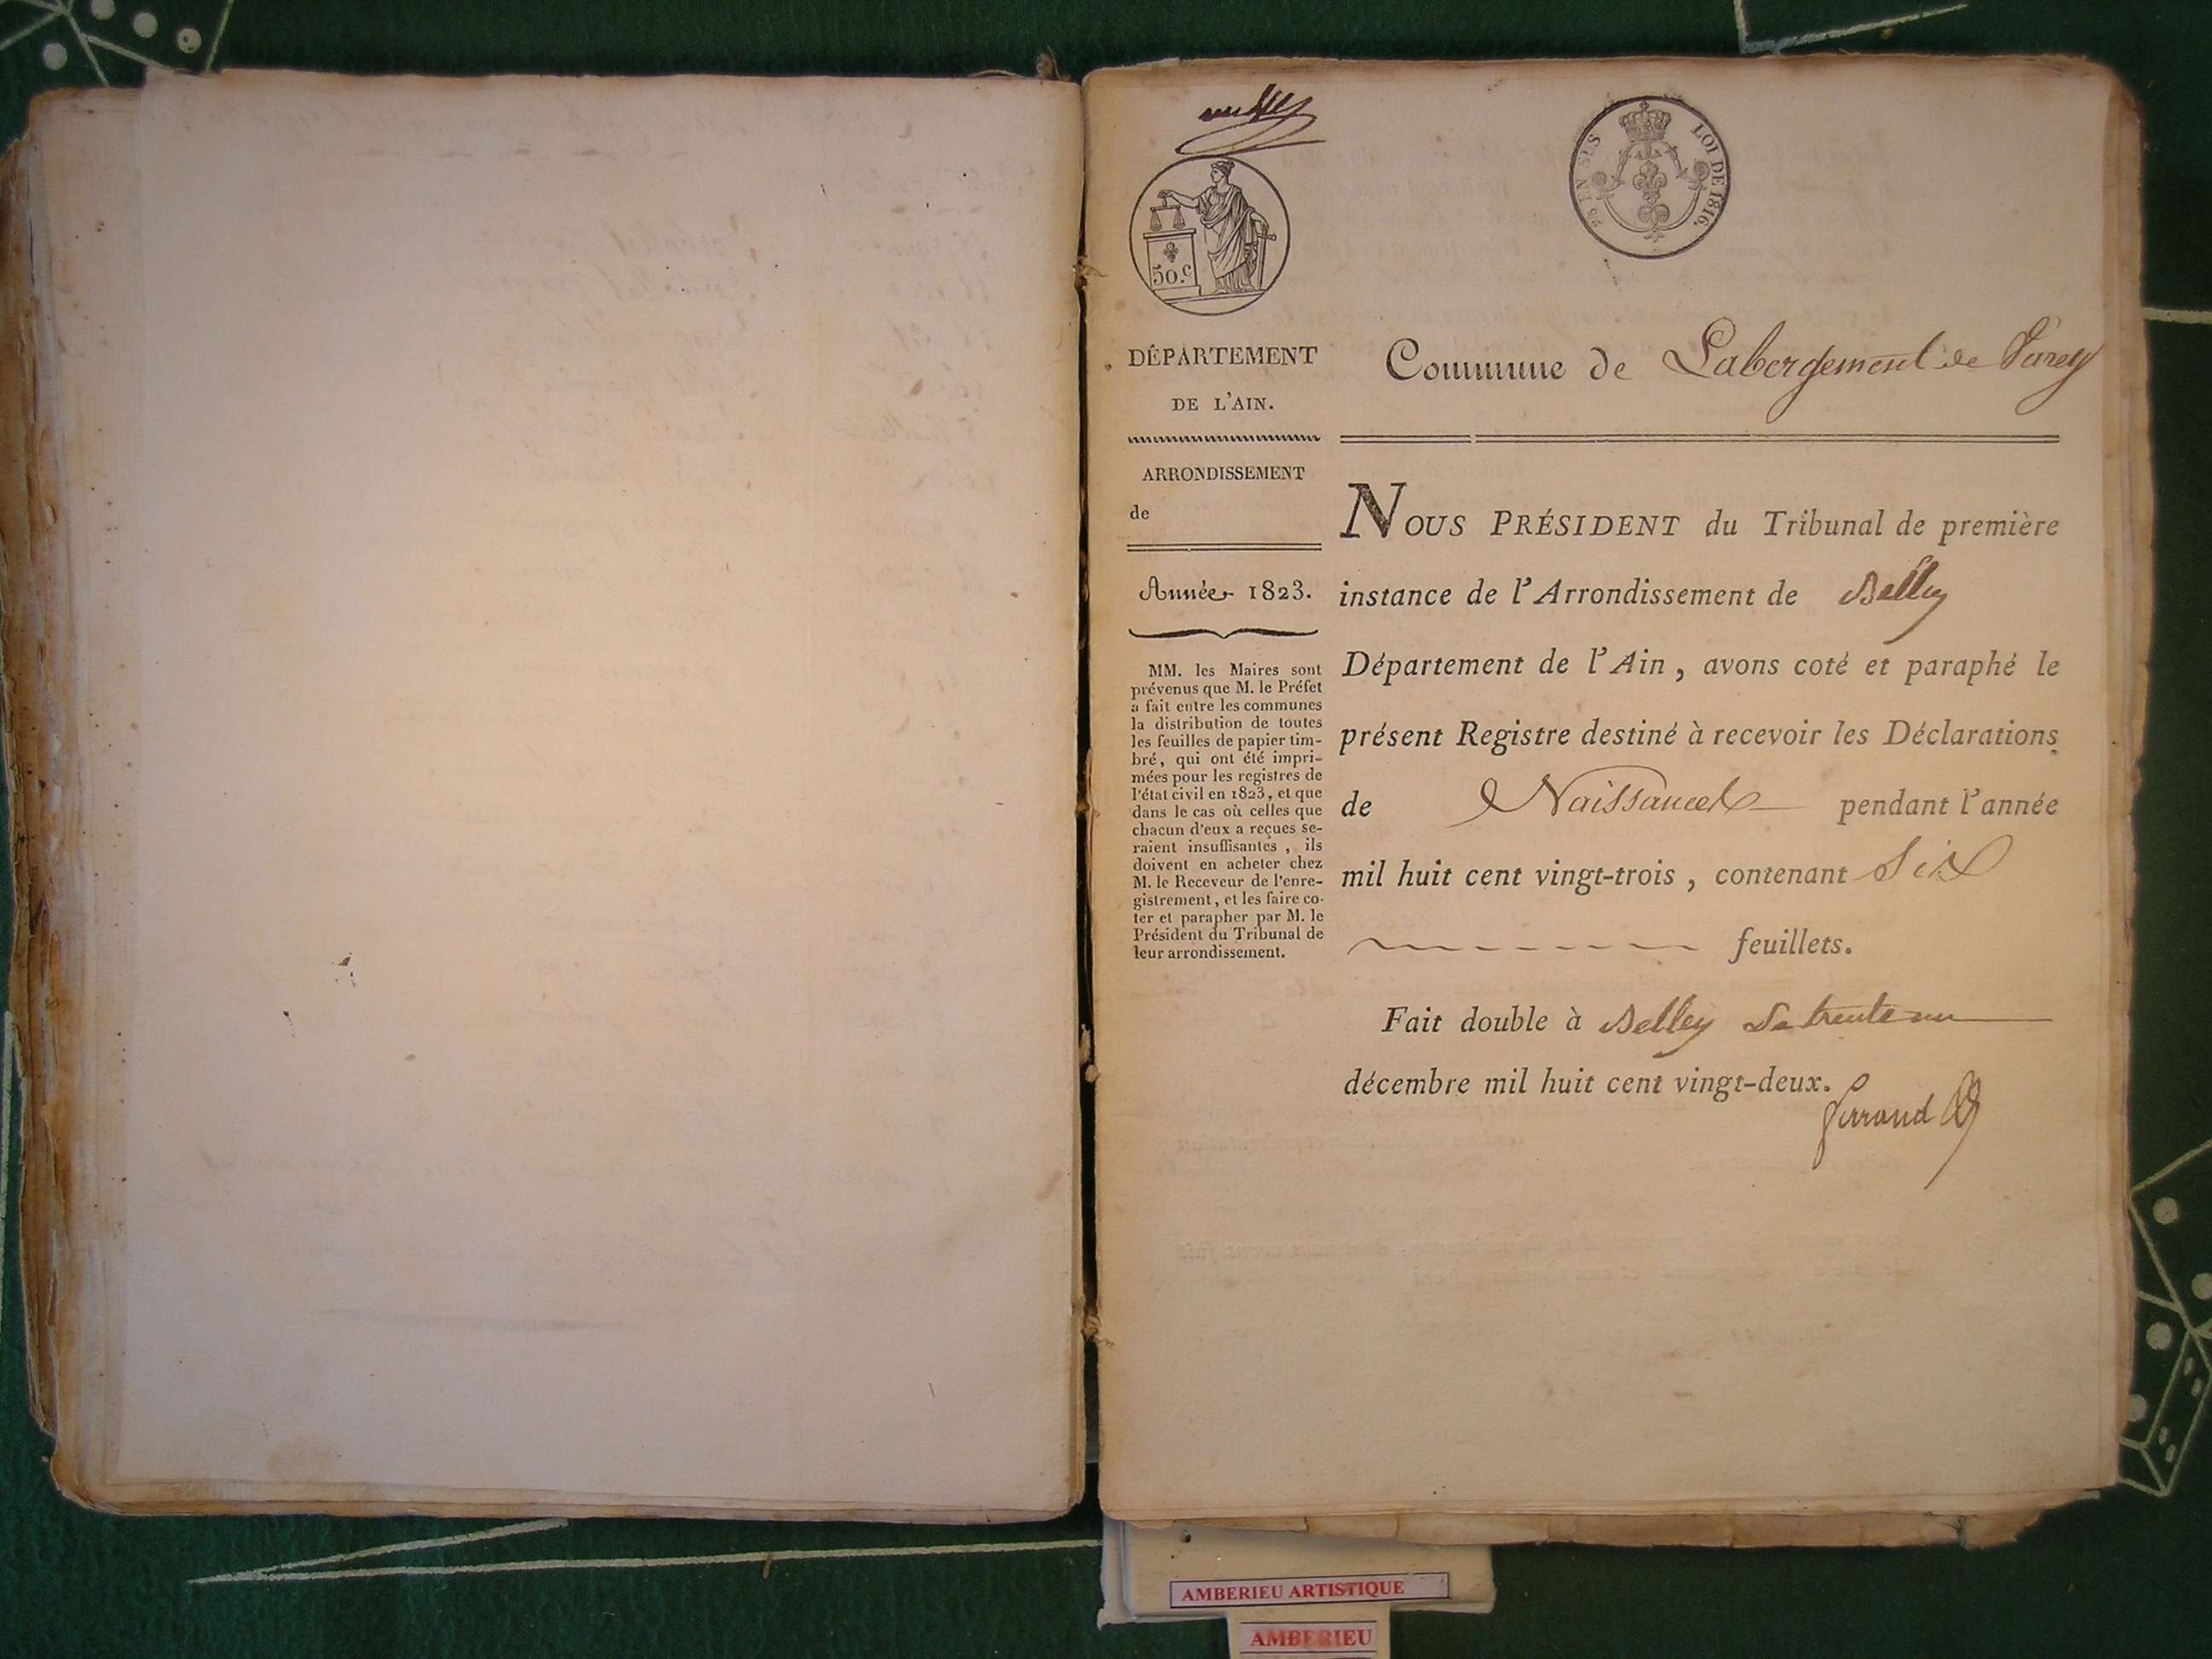 50.c
25 EN SUS
LOI DE 1816.
DÉPARTEMENT
DE L'AIN.
Commune de Labergement de Varey
ARRONDISSEMENT
de
Année 1823.
MM. les Maires sont
prévenus que M. le Préfet
a fait entre les communes
la distribution de toutes
les feuilles de papier tim-
bré, qui ont été impri-
mées pour les registres de
l'état civil en 1823, et que
dans le cas où celles que
chacun d'eux a reçues se-
raient insuffisantes , ils
doivent en acheter chez
M. le Receveur de l'enre-
gistrement, et les faire co-
ter et parapher par M. le
Président du Tribunal de
leur arrondissement.
NOUS PRÉSIDENT du Tribunal de première
instance de l'Arrondissement de Belley
Département de l'Ain , avons coté et paraphé le
présent Registre destiné à recevoir les Déclarations
de Naissances pendant l'année
mil huit cent vingt-trois , contenant Six
feuillets.
Fait double à Belley Le trente un
décembre mil huit cent vingt-deux.
AMBERIEU ARTISTIQUE
AMBERIEU